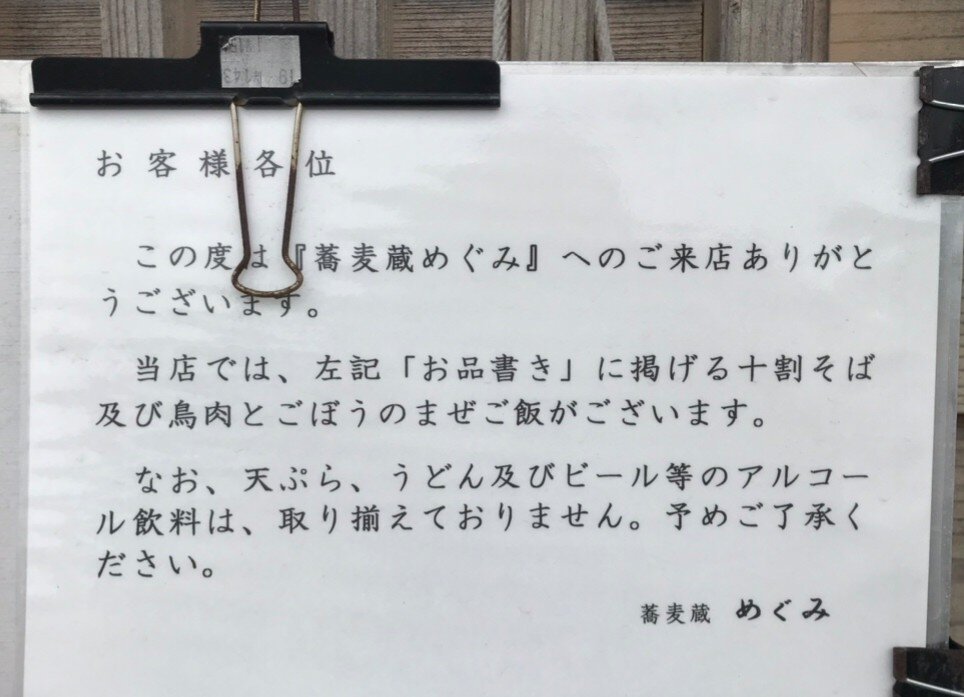 お客様各位
この度は『蕎麦蔵めぐみ』へのご来店ありがと
うございます。
当店では、左記「お品書き」に掲げる十割そば
及び鳥肉とごぼうのまぜご飯がございます。
なお、天ぷら、うどん及びビール等のアルコー
ル飲料は、取り揃えておりません。予めご了承く
ださい。
蕎麦蔵 めぐみ